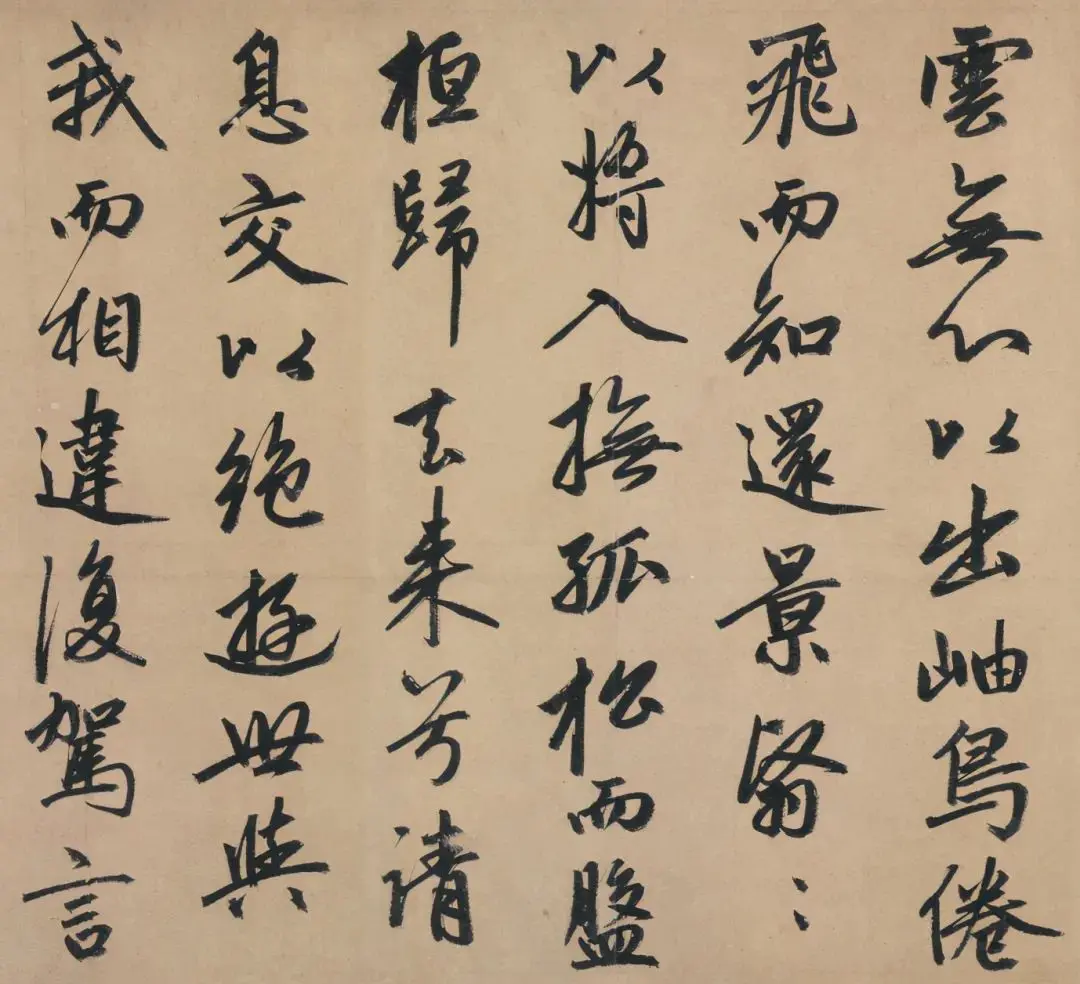 雲無心以出岫鳥倦
飛而知還景翳〻
以將入撫孤松而盤
桓歸去来兮請
息交以絶遊世與
我而相違復駕言